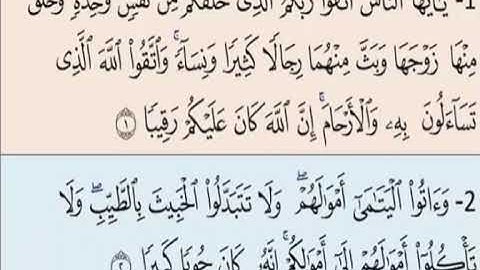 1- يَٰٓأَيُّهَا ٱلنَّاسُ ٱتَّقُوا۟ رَبَّكُمُ ٱلَّذِى خَلَقَكُم مِّن نَّفْسٍ وَٰحِدَةٍ وَخَلَقَ
مِنْهَا زَوْجَهَا وَبَثَّ مِنْهُمَا رِجَالًا كَثِيرًا وَنِسَآءً ۚ وَٱتَّقُوا۟ ٱللَّهَ ٱلَّذِى
تَسَآءَلُونَ بِهِۦ وَٱلْأَرْحَامَ ۚ إِنَّ ٱللَّهَ كَانَ عَلَيْكُمْ رَقِيبًا ١
2- وَءَاتُوا۟ ٱلْيَتَٰمَىٰٓ أَمْوَٰلَهُمْ ۖ وَلَا تَتَبَدَّلُوا۟ ٱلْخَبِيثَ بِٱلطَّيِّبِ ۖ وَلَا
تَأْكُلُوٓا۟ أَمْوَٰلَهُمْ إِلَىٰٓ أَمْوَٰلِكُمْ ۚ إِنَّهُۥ كَانَ حُوبًا كَبِيرًا ٢